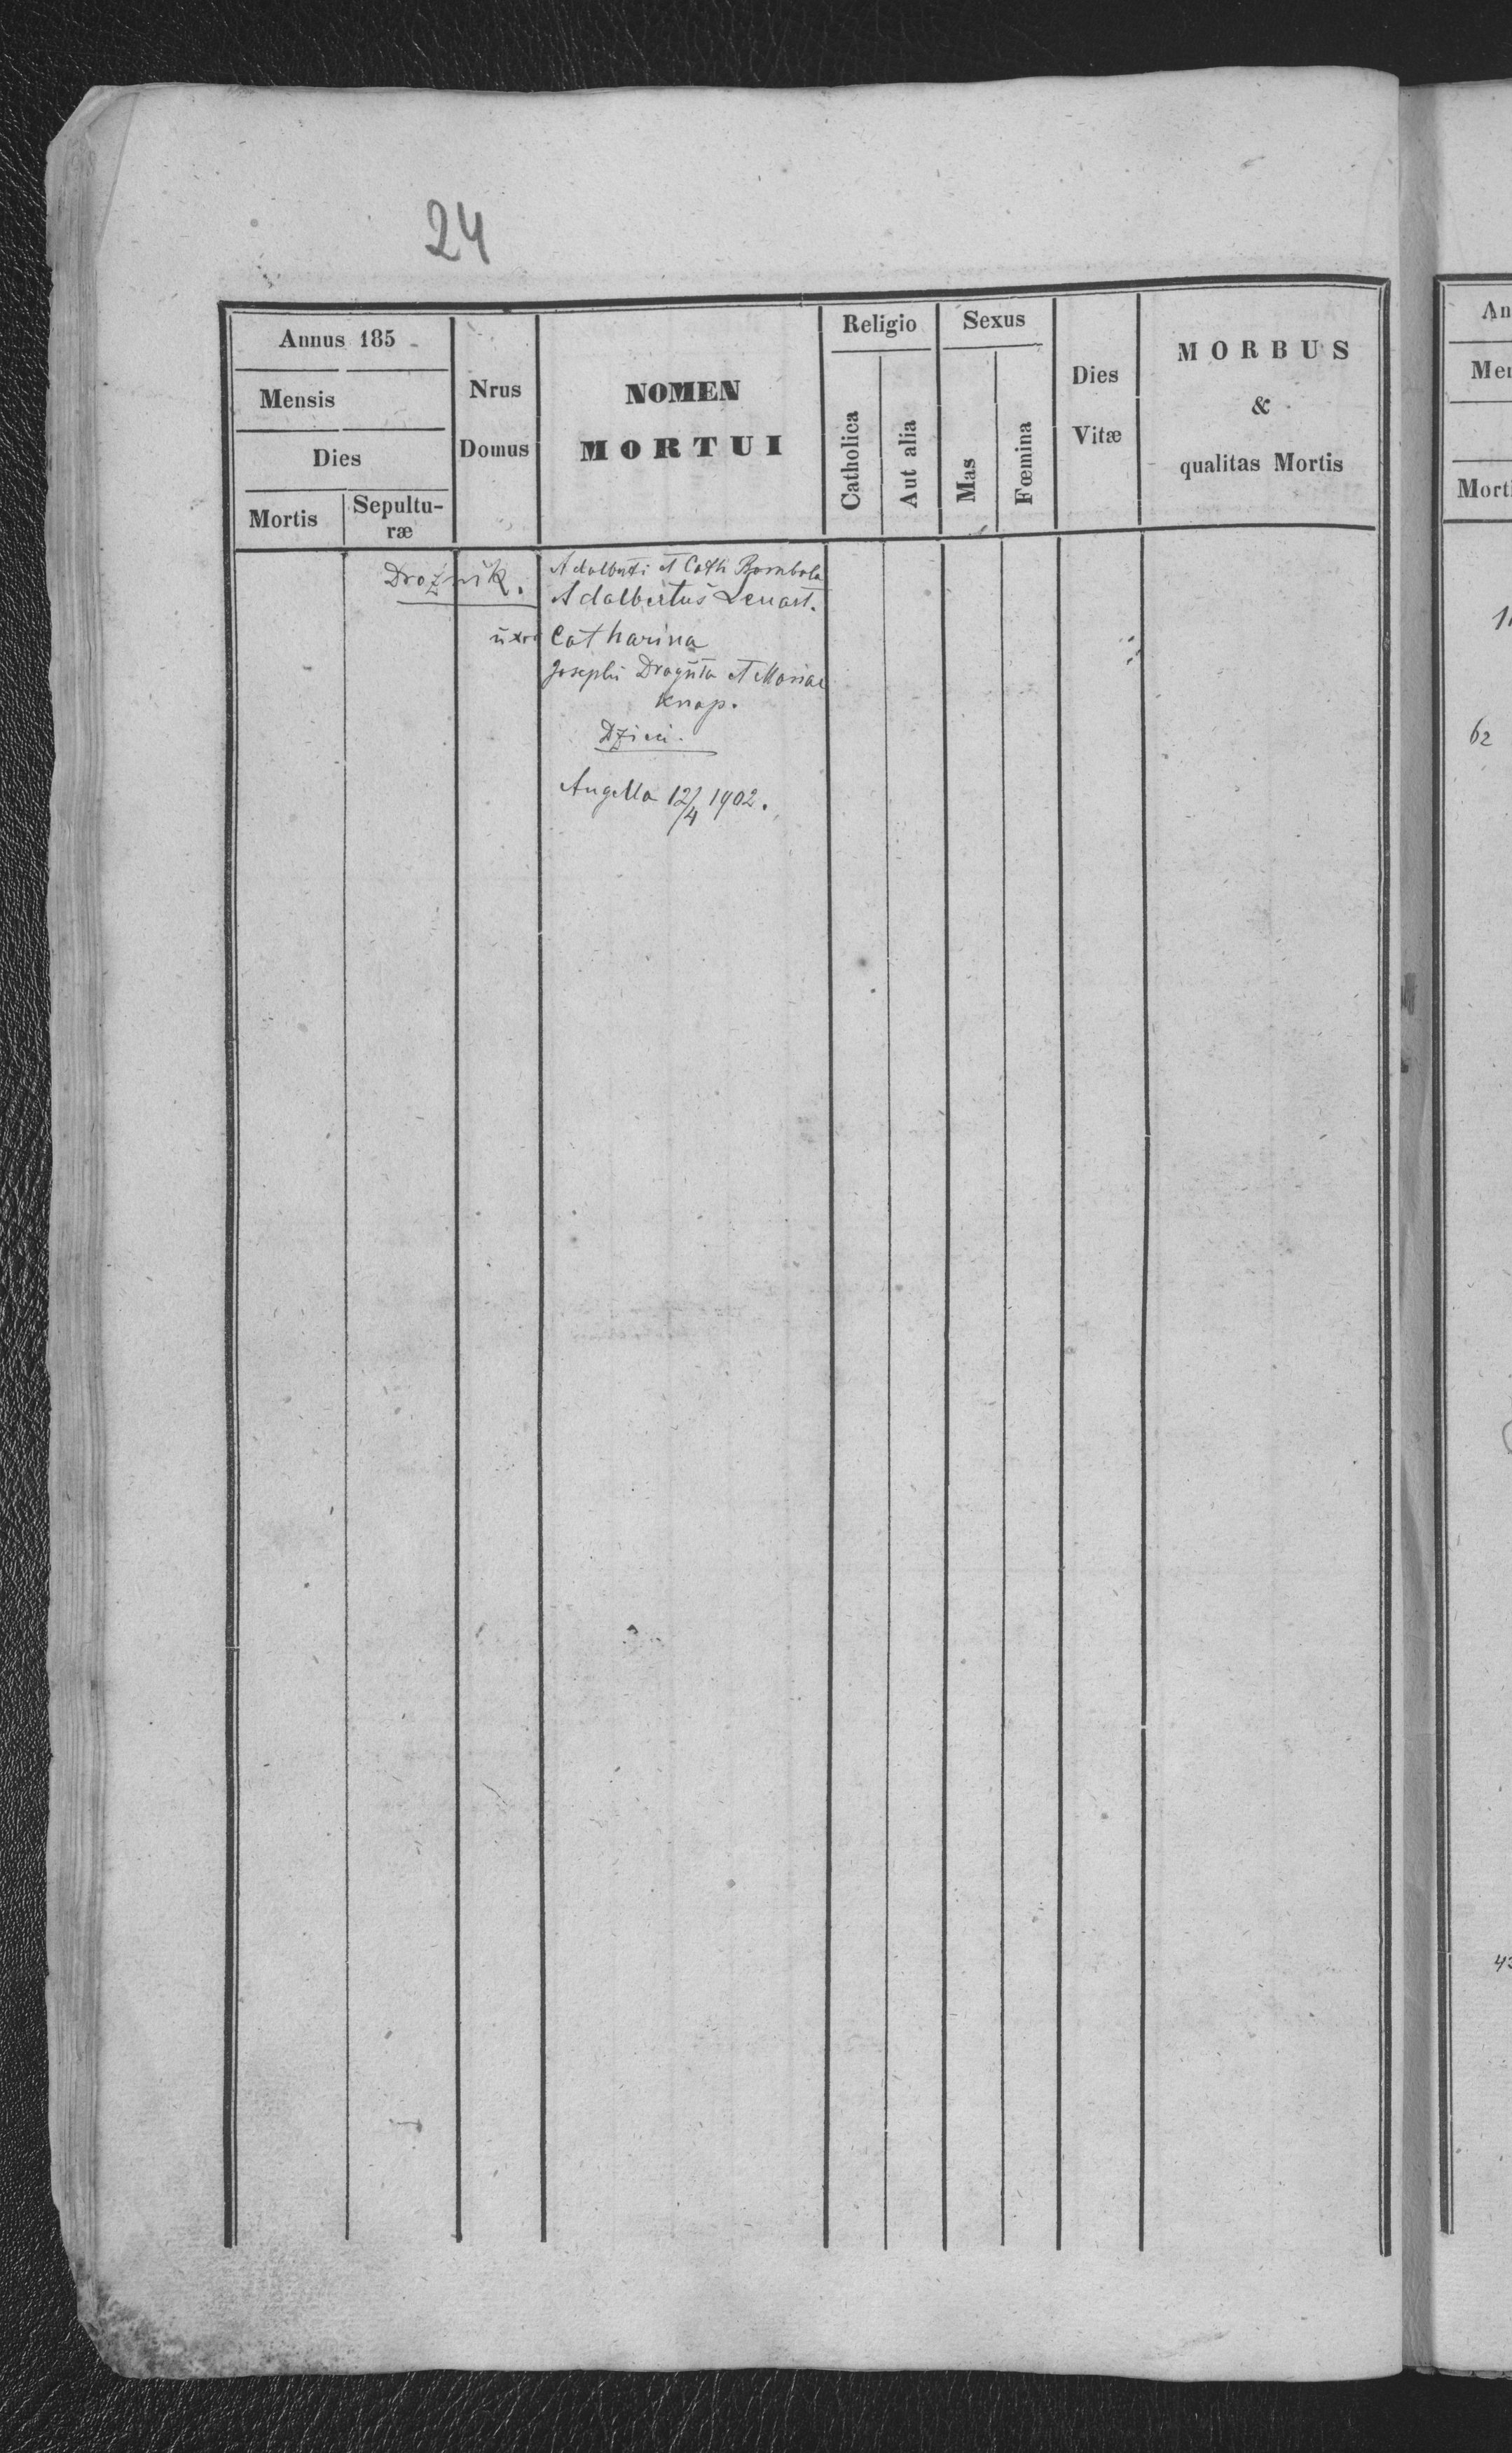 24
Annus 185
Mensis
Dies
Mortis
Sepultu-
ræ
Nrus
Domus
NOMEN
MORTUI
Religio
Catholica
Aut alia
Sexus
Mas
Fœmina
Dies
Vitæ
MORBUS
&
qualitas Mortis
Drożnik.
Adalberti et Cath Bombola
Adalbertus Lenart.
uxor Catharina
Josephi Draguła et Mariae
Knap.
Dzieci.
Angella 12/4 1902.
An
Mort
62